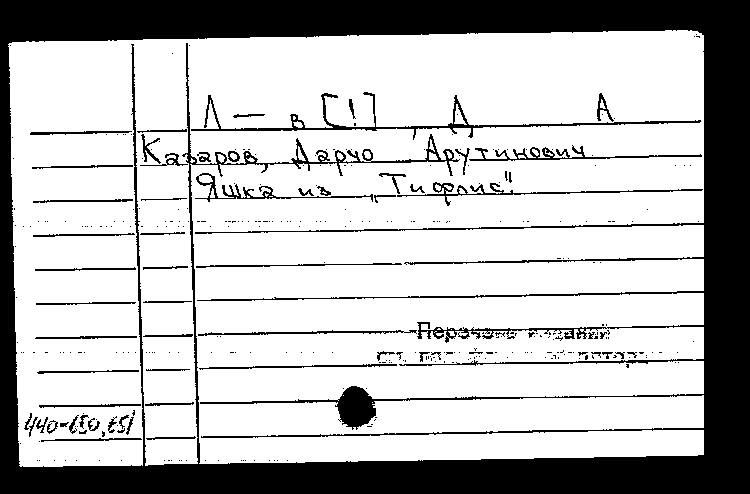 Л — в [!] , Д. А
Казаров, Дарчо Арутинович
Яшка из „Тифлис".
Перечень изданий
440-650, 651